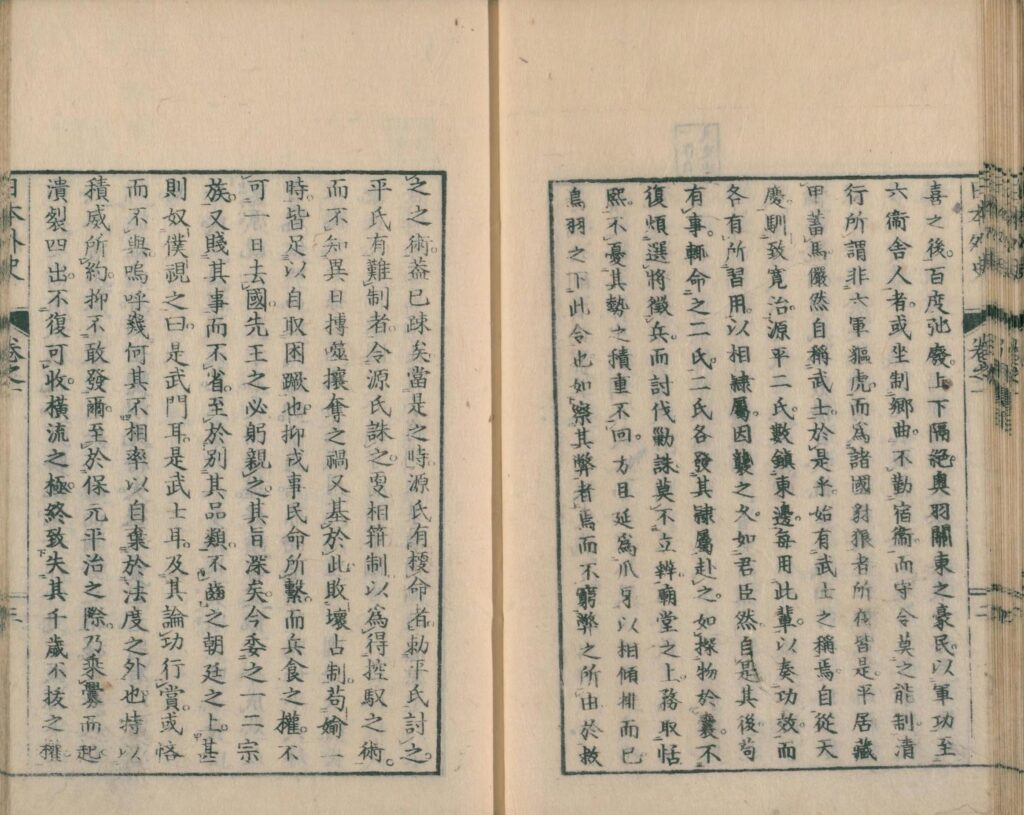 喜之後百度弛廢上下隔絕奧羽關東之豪民以軍功至
六衞舍人者或坐制鄉曲不勤宿衞而守令莫之能制清
行所謂非六軍貙虎而爲諸國豺狼者所在皆是平居藏
甲蓄馬儼然自稱武士於是乎始有武士之稱焉自從天
慶馴致寬治源平二氏數鎮東邊每用此輩以奏功效而
各有所習用以相隷屬因襲之久如君臣然自是其後苟
有事輒命之二氏二氏各發其隷屬赴之如探物於囊不
復煩選將徵兵而討伐勦誅莫不立辨廟堂之上務取恬
熙不憂其勢之積重不回方且延爲爪牙以相傾排而已
鳥羽之下此令也如察其弊者焉而不窮弊之所由於救
日本外史 卷之一 二
之之術葢已疎矣當是之時源氏有梗命者勑平氏討之
平氏有難制者令源氏誅之更相箝制以爲得控馭之術
而不知異日搏噬攘奪之禍又基於此敗壞古制苟媮一
時皆足以自取困蹶也抑戎事民命所繫而兵食之權不
可一日去國先王之必躬親之其旨深矣今委之一二宗
族又賤其事而不省至於別其品類不齒之朝廷之上甚
則奴僕視之曰是武門耳是武士耳及其論功行賞或恡
而不與嗚呼幾何其不相率以自棄於法度之外也特以
積威所約抑不敢發爾至於保元平治之際乃乘釁而起
潰裂四出不復可收橫流之極終致失其千歲不拔之權
日本外史 卷之一 三